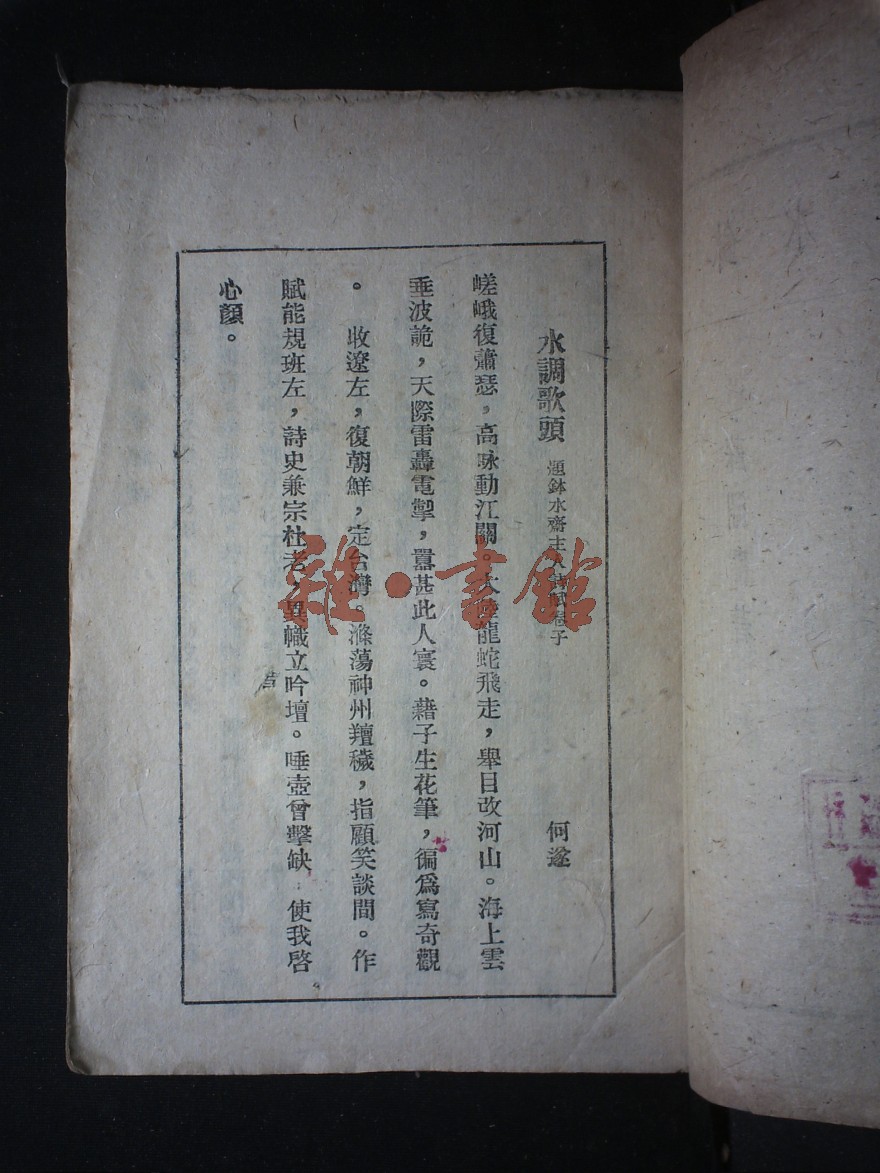 水調歌頭 題鉢水齋主人詩賦卷子 何遂
嵯峨復蕭瑟，高咏動江關。大陸龍蛇飛走，舉目改河山。海上雲
垂波詭，天際雷轟電掣，囂甚此人寰。藉子生花筆，徧爲寫奇觀
。 收遼左，復朝鮮，定台灣。滌蕩神州羶穢，指顧笑談間。作
賦能規班左，詩史兼宗杜老，異幟立吟壇。唾壺曾擊缺 使我啓
心顏。
雜·書館